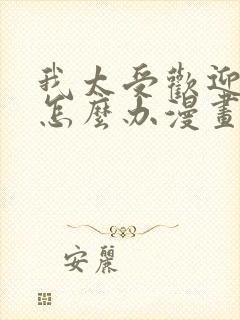 我太受歡迎
怎麼办漫畫
安麗